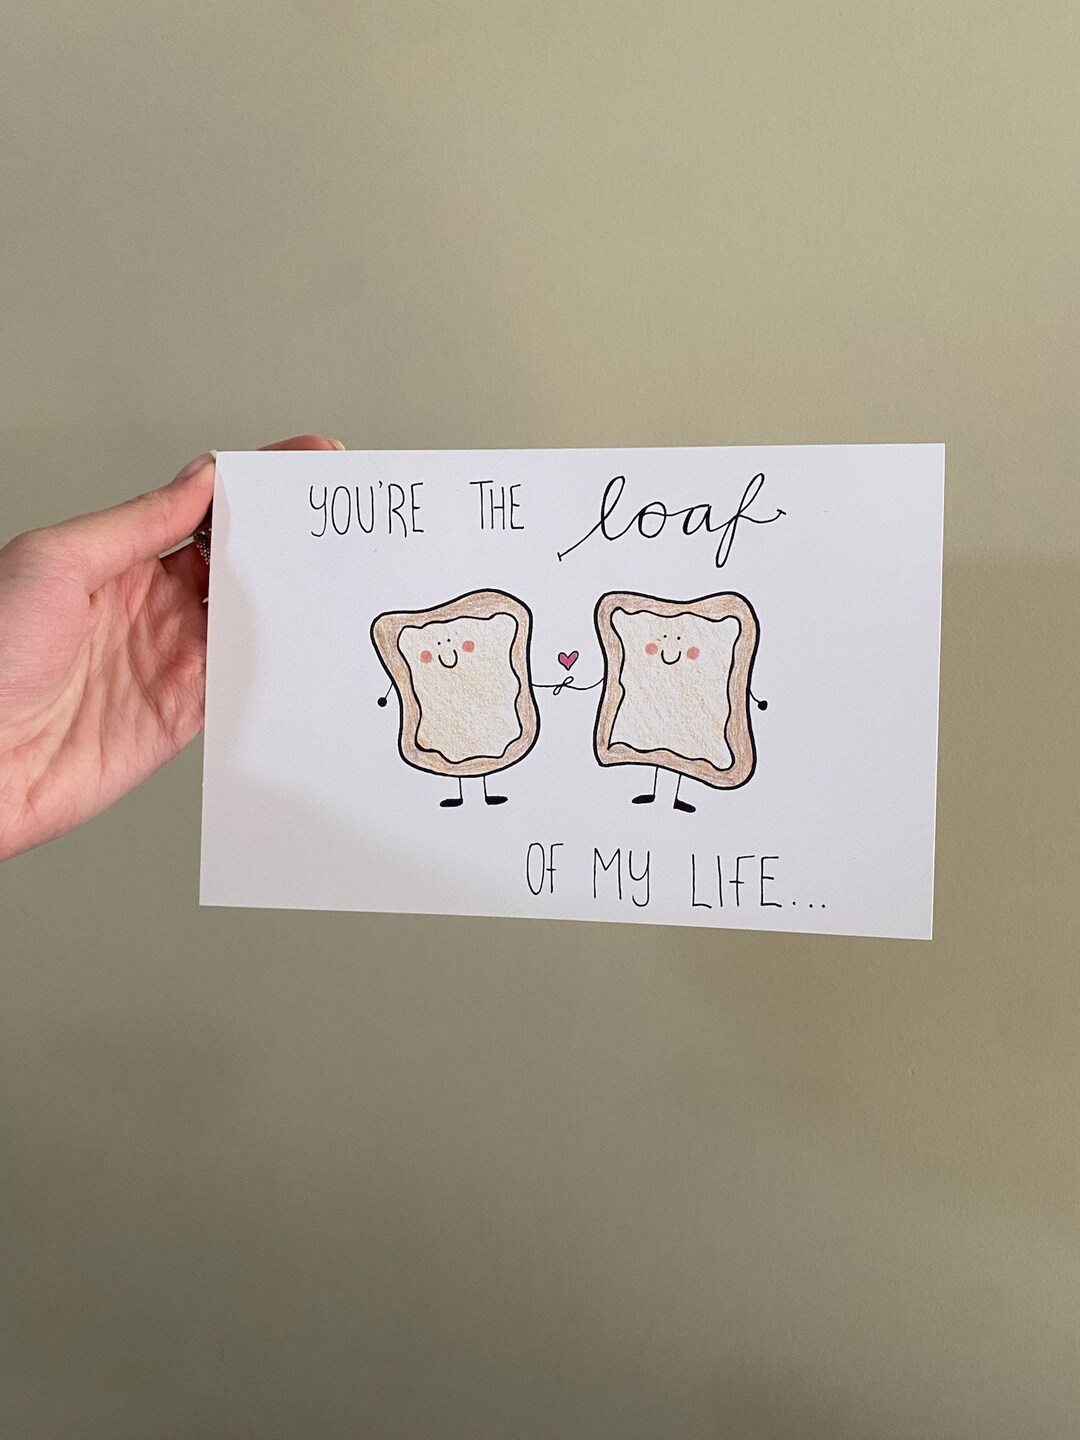 YOU'RE THE loaf
OF MY LIFE...